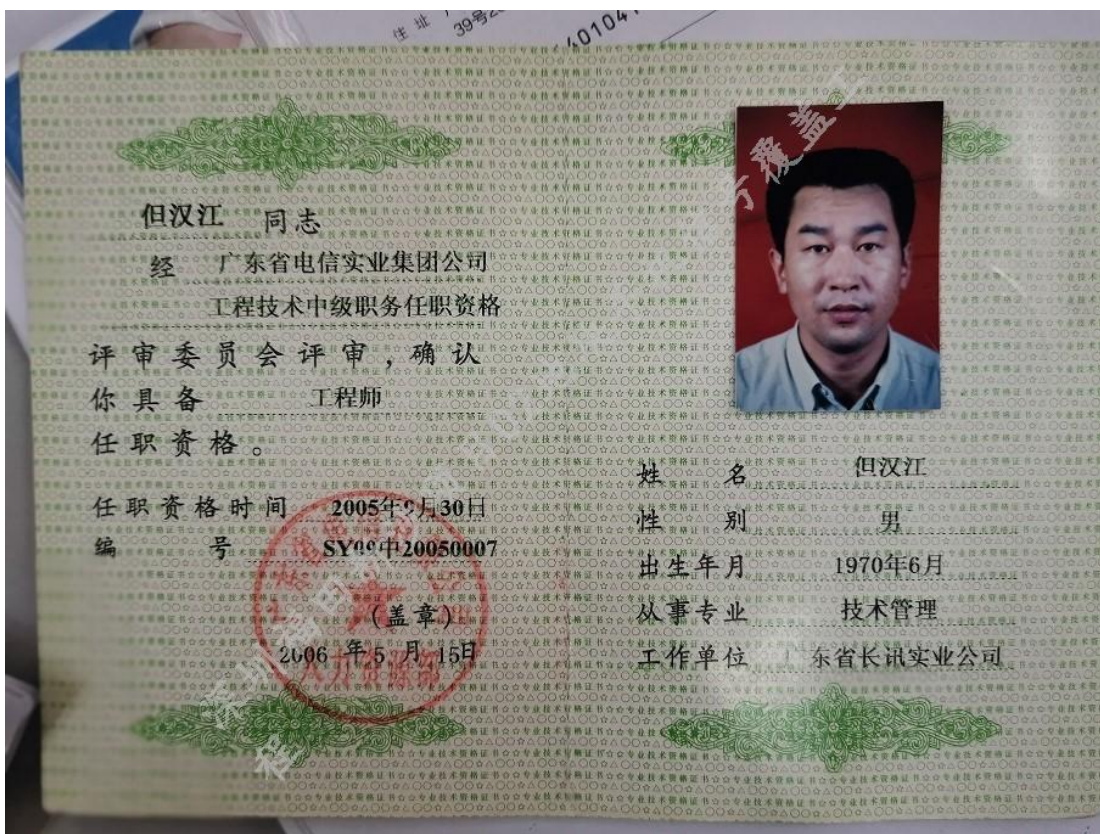 住址
39号
但汉江 同志
经 广东省电信实业集团公司
工程技术中级职务任职资格
评审委员会评审，确认
你具备 工程师
任职资格。
任职资格时间 2005年9月30日
编号 SY09中20050007
(盖章)
2006 年 5 月 15日
人力资源部
姓名 但汉江
性别 男
出生年月 1970年6月
从事专业 技术管理
工作单位 广东省长讯实业公司